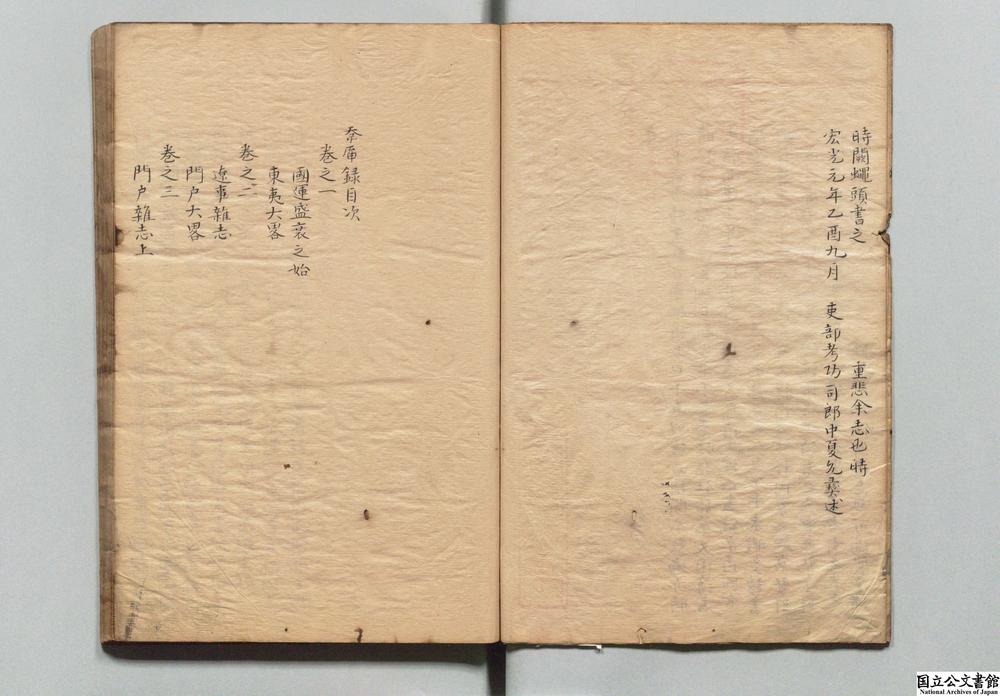 時闕蠅頭書之 重悲余志也時
宏光元年乙酉九月 吏部考功司郎中夏允彝述
幸存録目次
卷之一
國運盛衰之始
東夷大畧
卷之二
遼事雜志
門户大畧
卷之三
門户雜志上
国立公文書館
National Archives of Japan